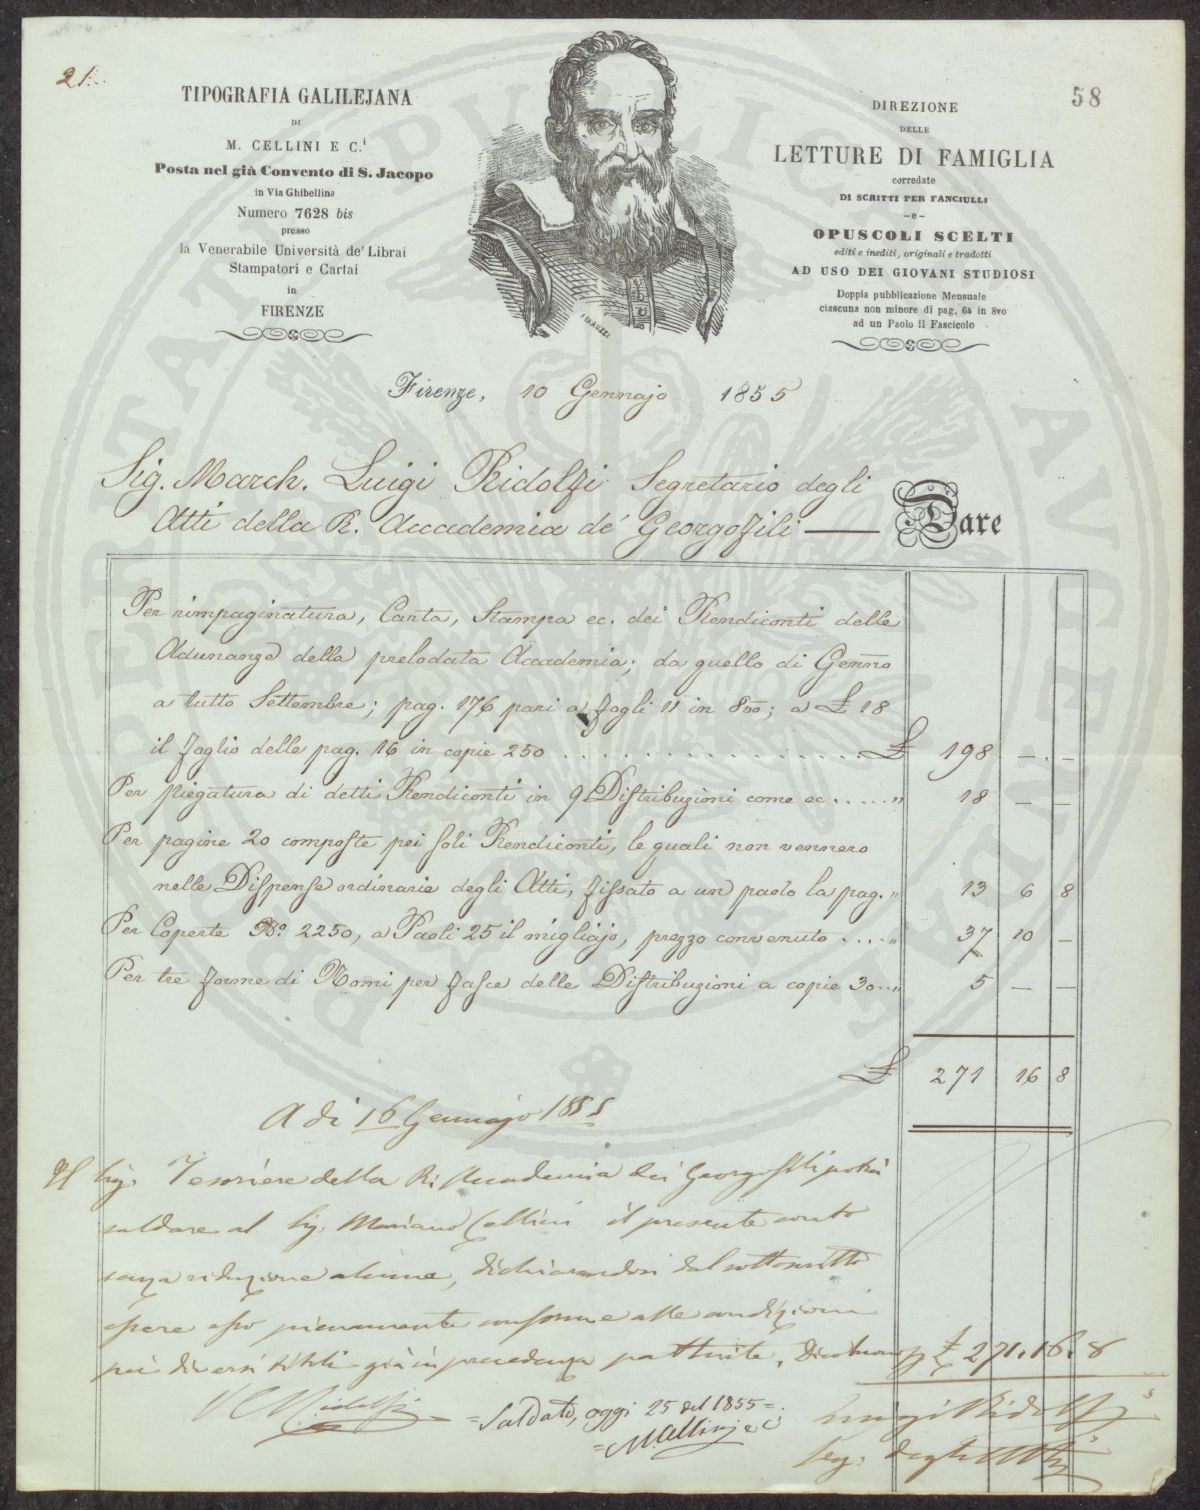 21.
58
TIPOGRAFIA GALILEJANA
DI
M. CELLINI E C.i
Posta nel già Convento di S. Jacopo
in Via Ghibellina
Numero 7628 bis
presso
la Venerabile Università de' Librai
Stampatori e Cartai
in
FIRENZE
DIREZIONE
DELLE
LETTURE DI FAMIGLIA
corredate
DI SCRITTI PER FANCIULLI
-e-
OPUSCOLI SCELTI
editi e inediti, originali e tradotti
AD USO DEI GIOVANI STUDIOSI
Doppia pubblicazione Mensuale
ciascuna non minore di pag. 64 in 8vo
ad un Paolo il Fascicolo
Firenze, 10 Gennajo 1855
Sig. March. Luigi Ridolfi Segretario degli
Atti della R. Accademia de' Georgofili — Dare
Per rimpaginatura, Carta, Stampa ec. dei Rendiconti delle
Adunanze della prelodata Accademia; da quello di Genno
a tutto Settembre; pag. 176 pari a fogli 11 in 8vo; a £ 18
il foglio delle pag. 16 in copie 250 . . . . . . £ 198 — . —
Per piegatura di detti Rendiconti in 9 Distribuzioni come ec . . . . . " 18 — —
Per pagine 20 composte pei soli Rendiconti, le quali non vennero
nelle Dispense ordinarie degli Atti, fissato a un paolo la pag. " 13 6 8
Per Coperte No. 2250, a Paoli 25 il migliajo, prezzo convenuto . . . . " 37 10 —
Per tre forme di Nomi per fasce delle Distribuzioni a copie 30 . . " 5 — —
£ 271 16 8
A dì 16 Gennajo 1855
Il Sig. Tesoriere della R. Accademia dei Georgofili potrà
saldare al Sig. Mariano Cellini il presente conto
senza riduzione alcuna, dichiarandosi dal sottoscritto
essere esso pienamente conforme alle condizioni
pei diversi titoli già in precedenza pattuite. £ 271. 16. 8
Luigi Ridolfi
Seg. degli Atti
V. Ridolfi
= Saldato, oggi 25 del 1855 =
= MCellini e C.i